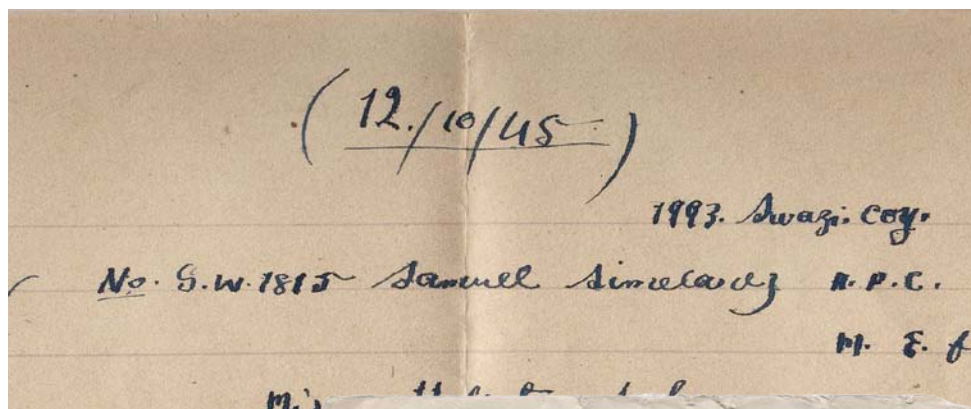 (12./10/45)
1993. Swazi. Coy.
No. S.W. 1815 Samuell A.P.C.
M. E.